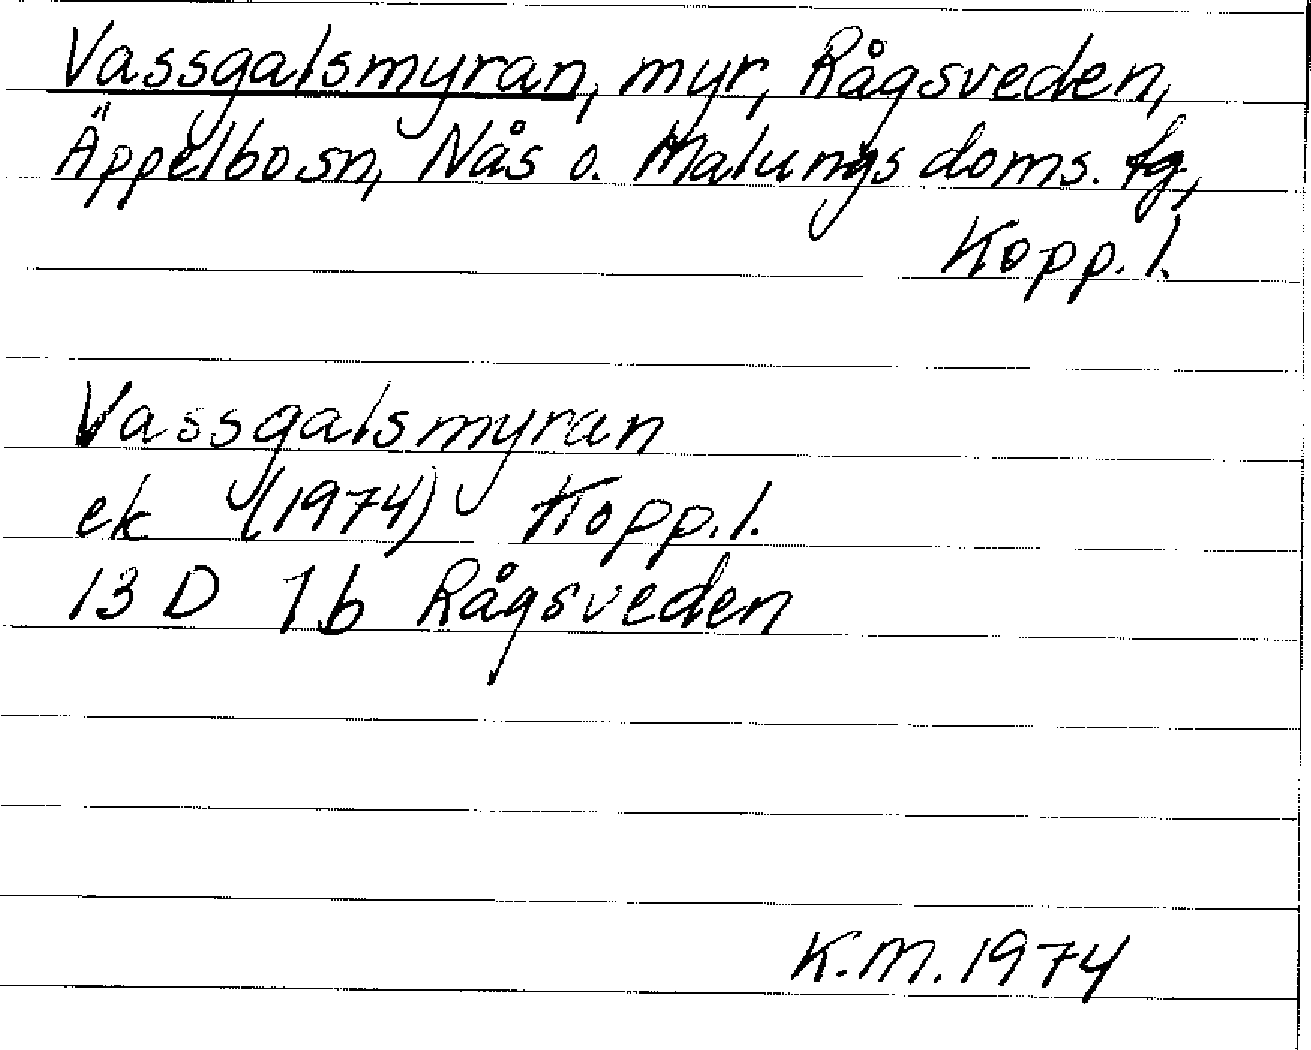 Vassgalsmyran, myr, Rågsveden,
Äppelbo sn, Nås o. Malungs doms. fg,
Kopp. l.
Vassgalsmyran
ek (1974) Kopp. l.
13 D 1b Rågsveden
K.M. 1974